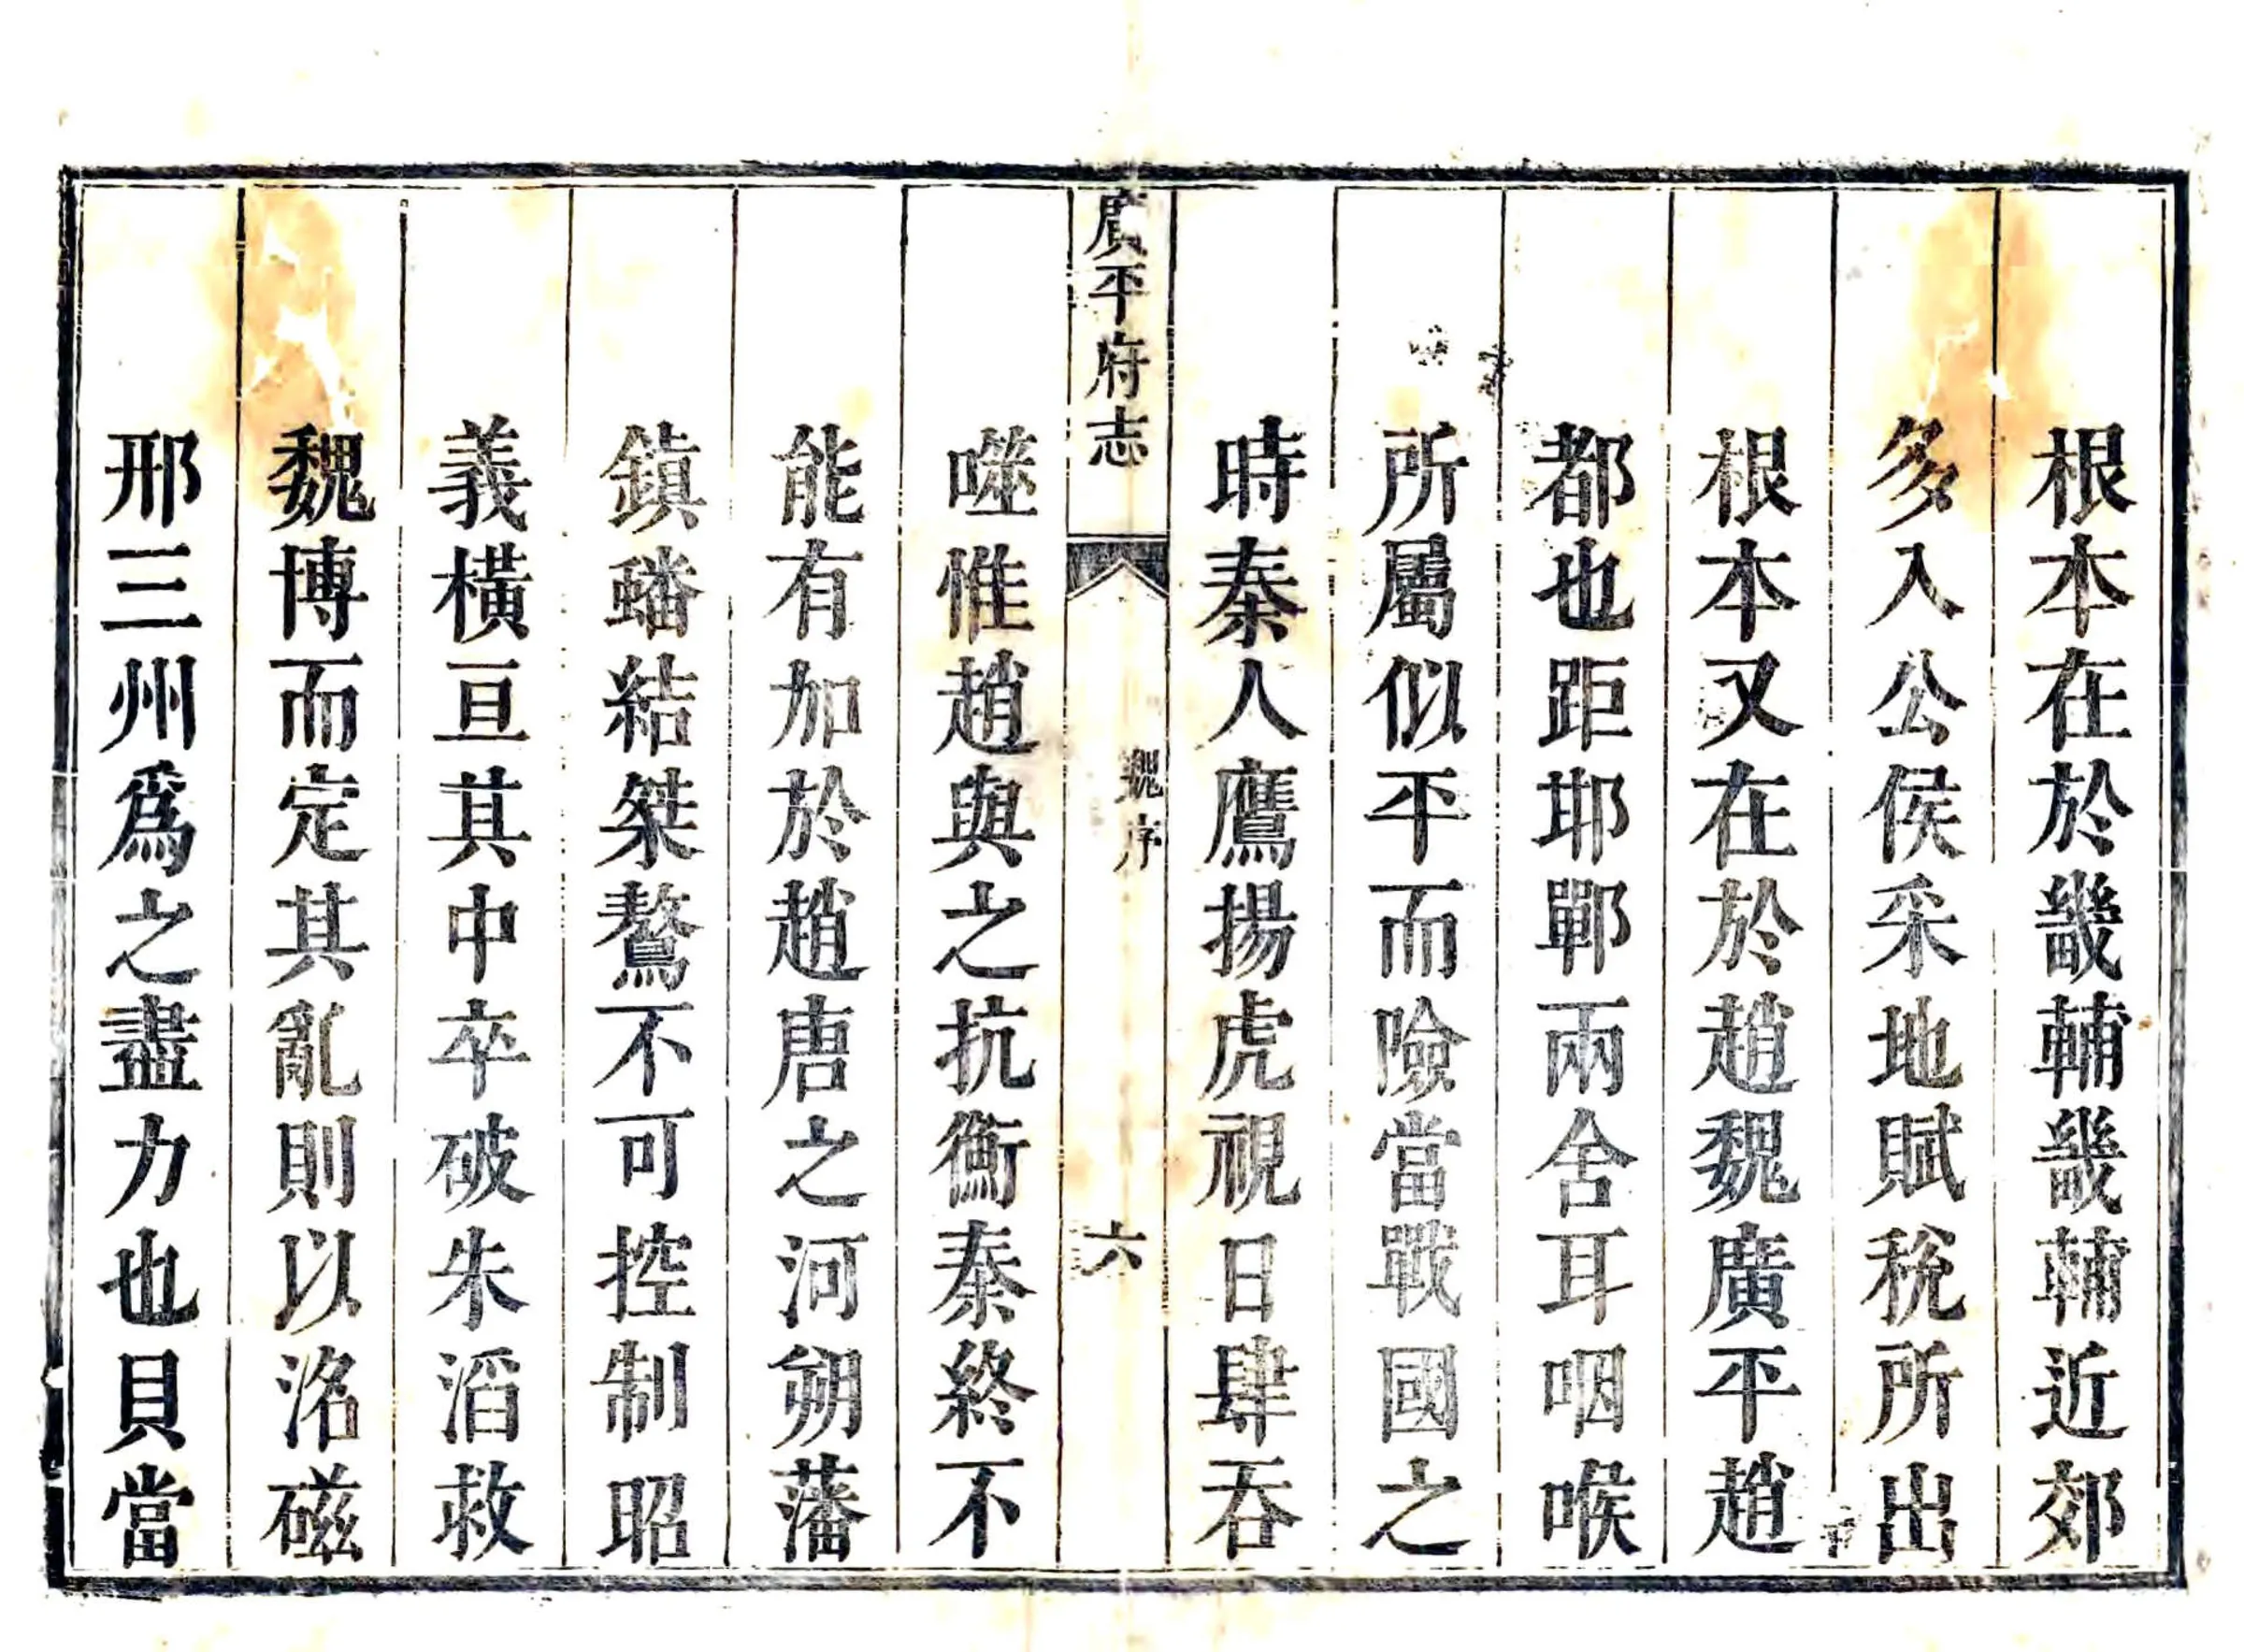 根本在於畿輔畿輔近郊
多入公侯采地賦稅所出
根本又在於趙魏廣平趙
都也距邯鄲兩舍耳咽喉
所屬似平而險當戰國之
時秦人鷹揚虎視日肆吞
廣平府志
魏序
六
噬惟趙與之抗衡秦終不
能有加於趙唐之河朔藩
鎮蟠結桀驁不可控制昭
義橫亘其中卒破朱滔救
魏博而定其亂則以洺磁
邢三州爲之盡力也貝當